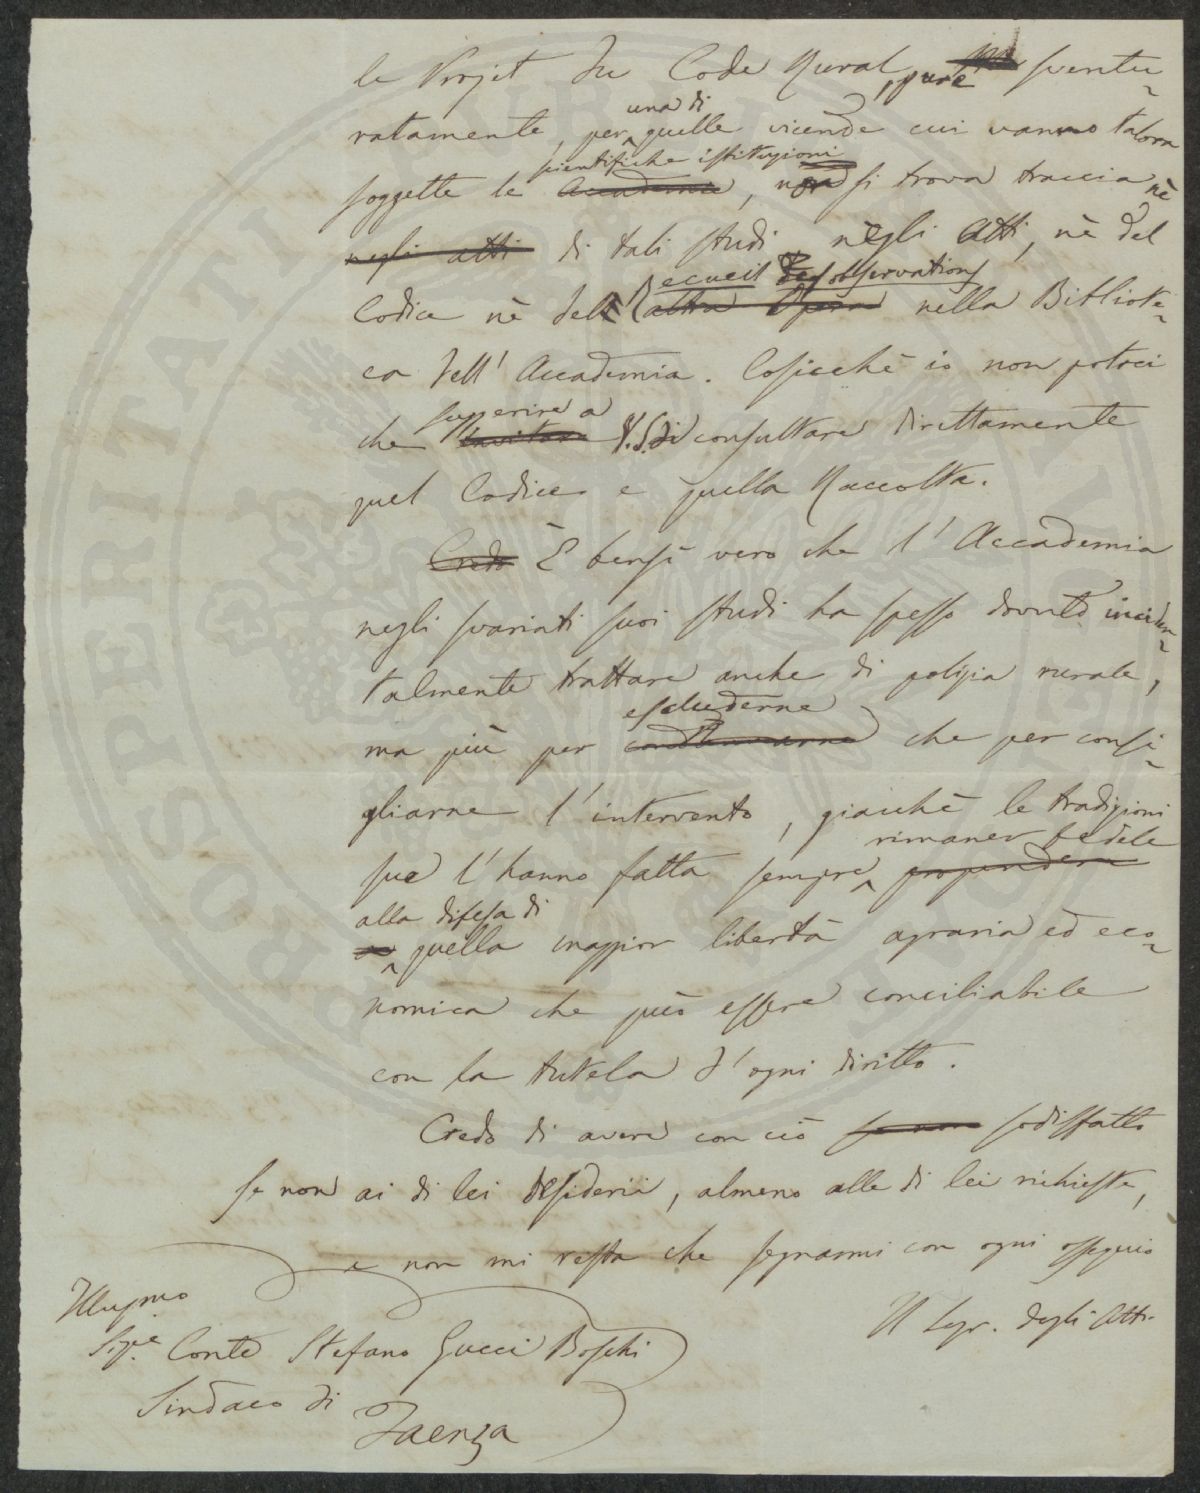 le Projet du Code Rural, pure sventu-
ratamente, per una di quelle vicende cui vanno talora
soggette le scientifiche istituzioni Accademie, non si trova traccia nè
negli atti di tali studi negli Atti, nè del
Codice nè del Recueil des observations altra Opera nella Bibliote-
ca dell' Accademia. Cosicchè io non potrei
che suggerire a invitare V.S. di consultare direttamente
quel Codice e quella Raccolta.
Credo È bensì vero che l' Accademia
negli svariati suoi studi ha spesso dovuto inciden-
talmente trattare anche di polizia rurale,
ma più per escluderne condannarne che per consi-
gliarne l' intervento, giacchè le tradizioni
sue l' hanno fatta sempre rimaner fedele propendere
alla difesa di
a quella maggior libertà agraria ed eco-
nomica che può essere conciliabile
con la tutela d' ogni diritto.
Credo di avere con ciò se non sodisfatto
se non ai di lei desiderii, almeno alle di lei richieste,
e non mi resta che segnarmi con ogni ossequio
Il Segr. degli Atti
Illustrmo
Sigre Conte Stefano Gucci Boschi
Sindaco di
Faenza
PROSPERITATI PUBLICAE